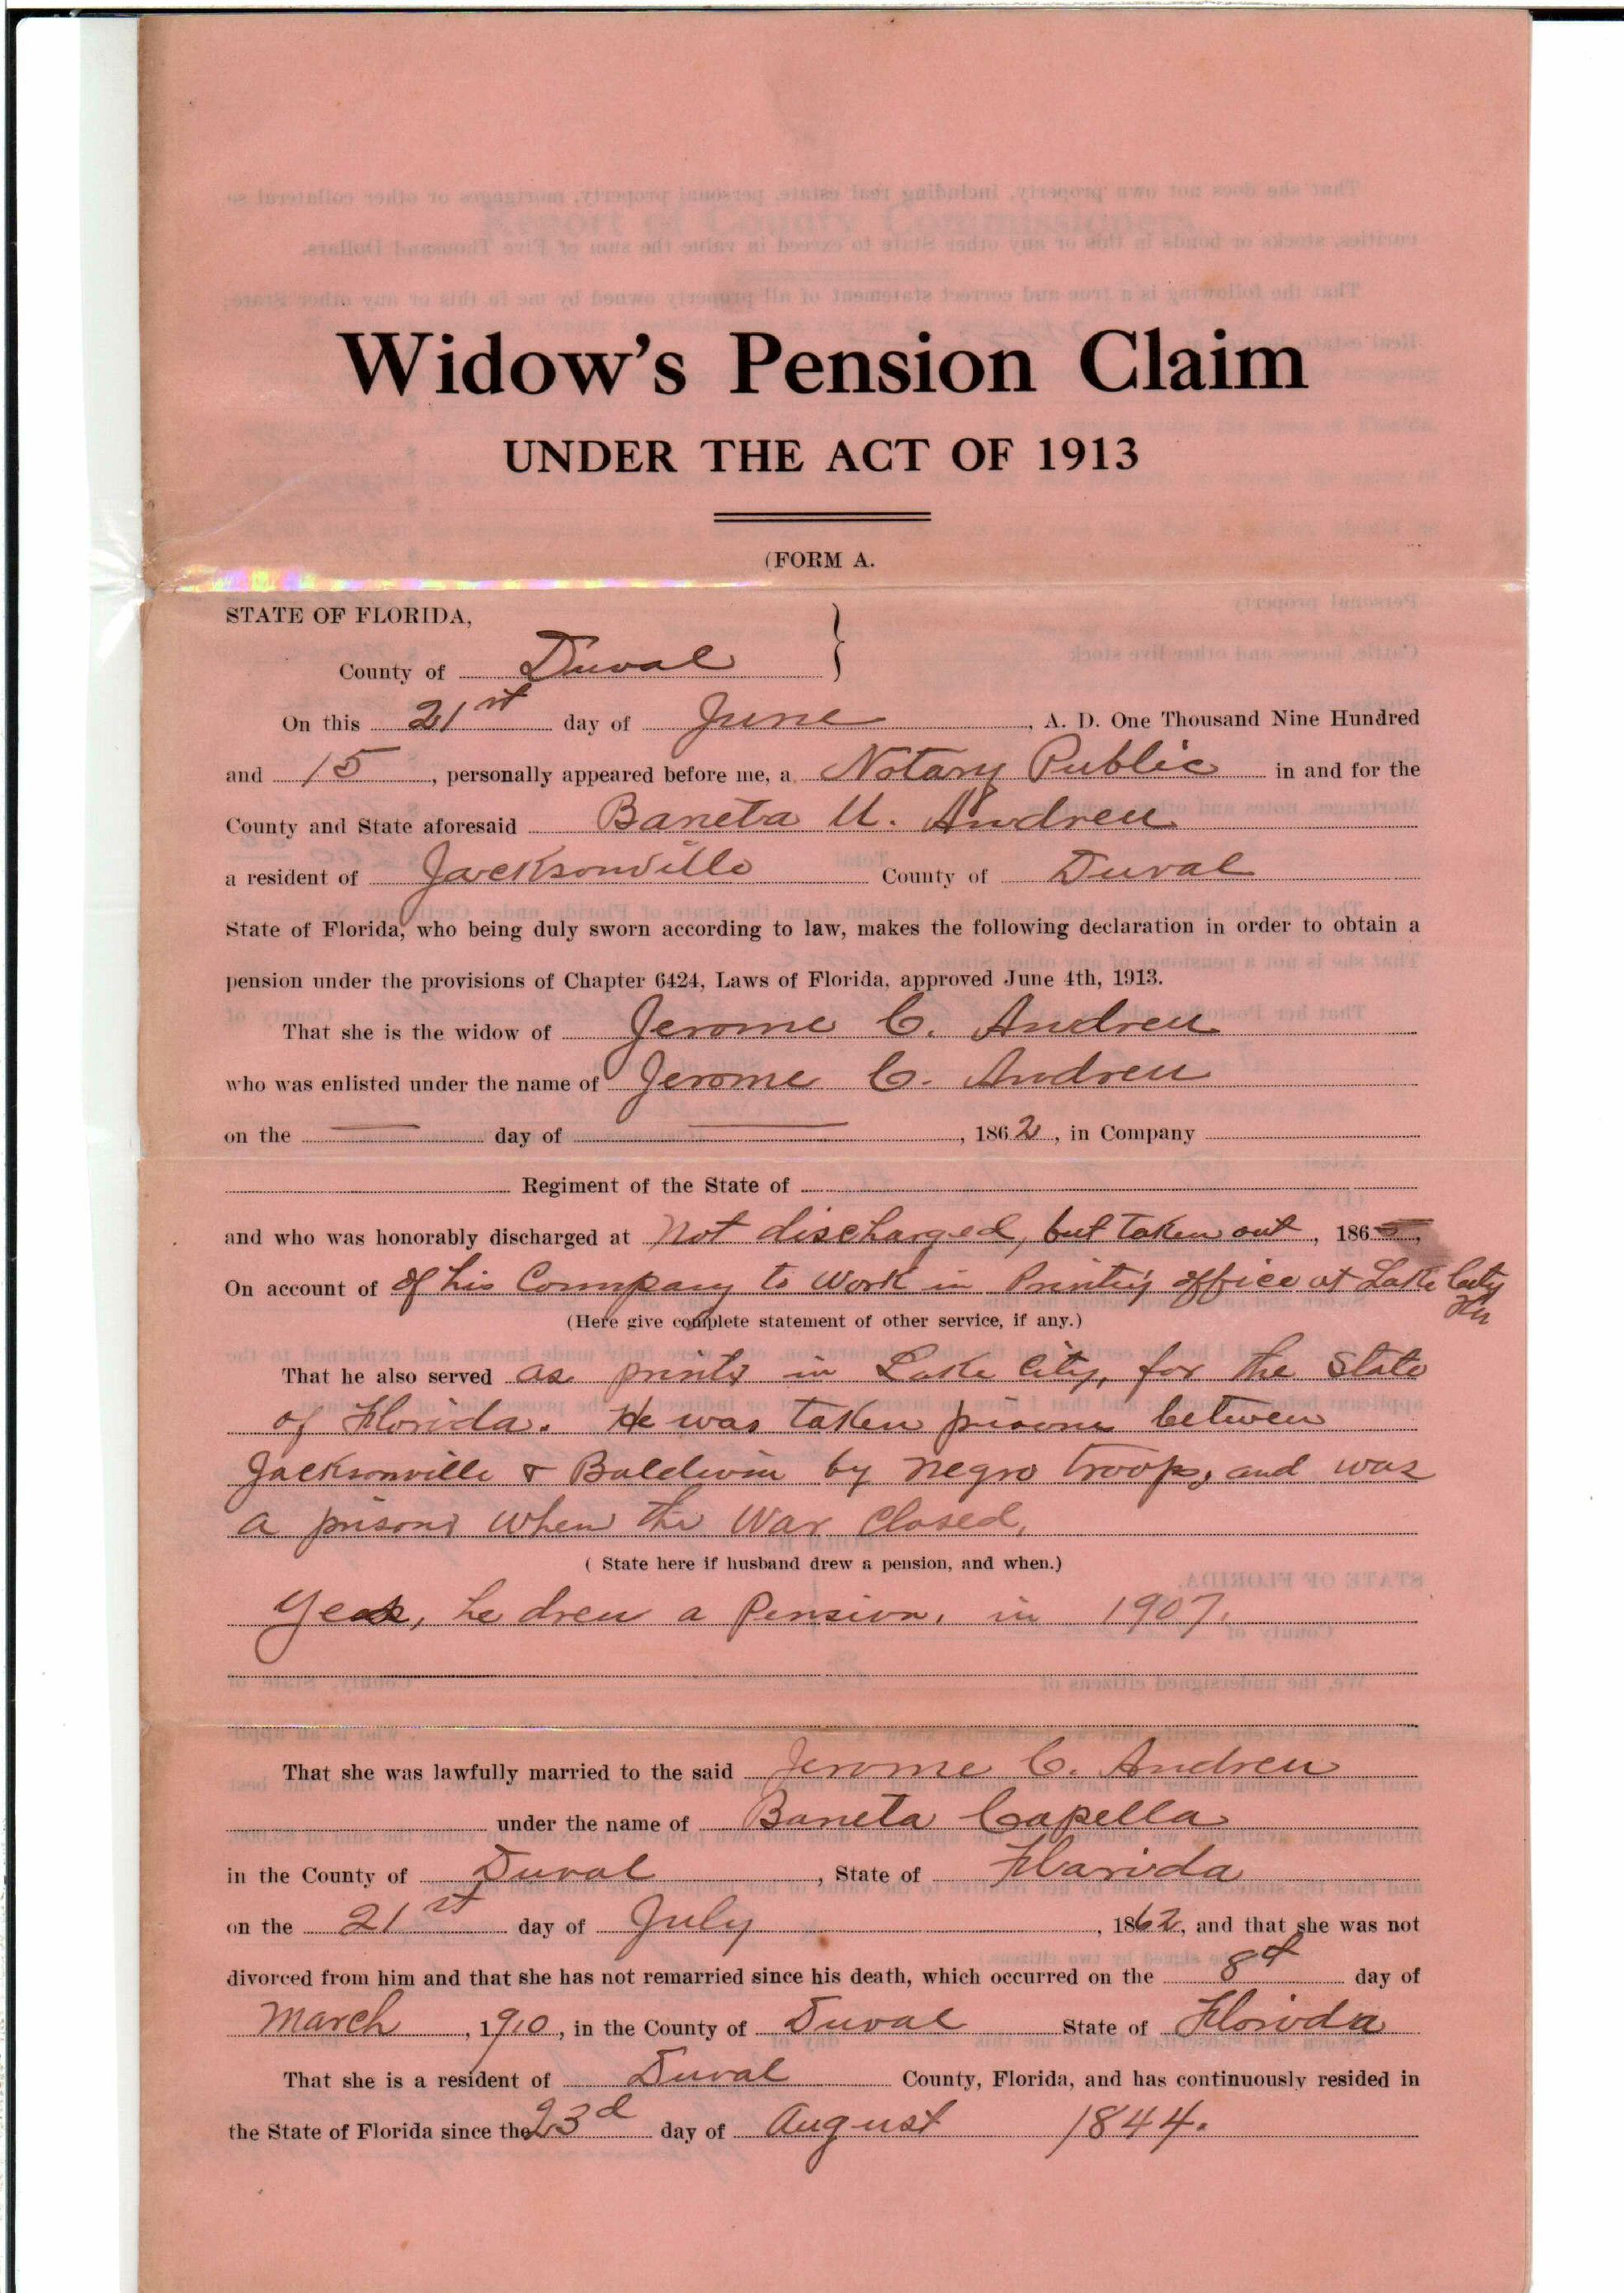 Widow's Pension Claim
UNDER THE ACT OF 1913
(FORM A.
STATE OF FLORIDA,
County of Duval }
On this 21st day of June, A. D. One Thousand Nine Hundred
and 15, personally appeared before me, a Notary Public in and for the
County and State aforesaid Baneta U. Andreu
a resident of Jacksonville County of Duval
State of Florida, who being duly sworn according to law, makes the following declaration in order to obtain a
pension under the provisions of Chapter 6424, Laws of Florida, approved June 4th, 1913.
That she is the widow of Jerome C. Andreu
who was enlisted under the name of Jerome C. Andreu
on the — day of —, 1862, in Company
Regiment of the State of
and who was honorably discharged at Not discharged, but taken out, 186
On account of of his Company to Work in Printing office at Lake City
(Here give complete statement of other service, if any.)
That he also served as printer in Lake City, for the State
of Florida. He was taken prisoner between
Jacksonville & Baldwin by negro troops, and was
a prisoner when the War Closed.
( State here if husband drew a pension, and when.)
Yes, he drew a Pension, in 1907.
That she was lawfully married to the said Jerome C. Andreu
under the name of Baneta Capella
in the County of Duval, State of Florida
on the 21st day of July, 1862, and that she was not
divorced from him and that she has not remarried since his death, which occurred on the 8th day of
March, 1910, in the County of Duval State of Florida
That she is a resident of Duval County, Florida, and has continuously resided in
the State of Florida since the 23d day of August 1844.